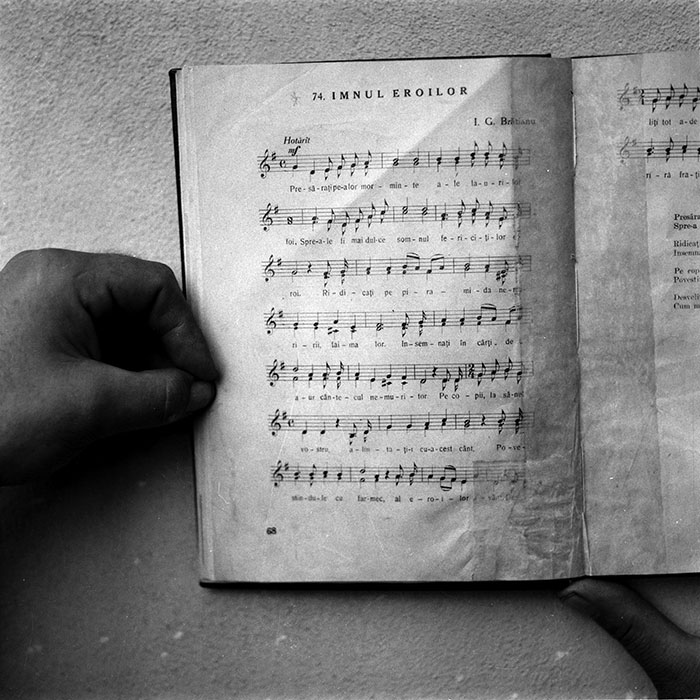 74. IMNUL EROILOR
I. G. Brătianu
Hotărît
mf
Pre - să - rați pe-a lor mor - min - te a - le la - u - ri - lor
foi, Spre-a - le fi mai dul-ce som - nul fe - ri - ci - ți - lor e -
roi. Ri - di - cați pe pi - ra - mi - da ne - mu -
ri - rii, fai - ma lor. In - sem - nați în cărți - de
a - ur cân - te - cul ne - mu - ri - tor. Pe co - pii, la sâ-nul
vo - stru, a - lin - ta - ți-i cu-a-cest cânt, Po - ve -
stin - du - le cu far-mec, al e - ro - i - lor
68
liți tot a - de
ri - ră fra - ți
Presăra
Spre-a
Ridicaț
Insemn
Pe cop
Povesti
Desveli
Cum m